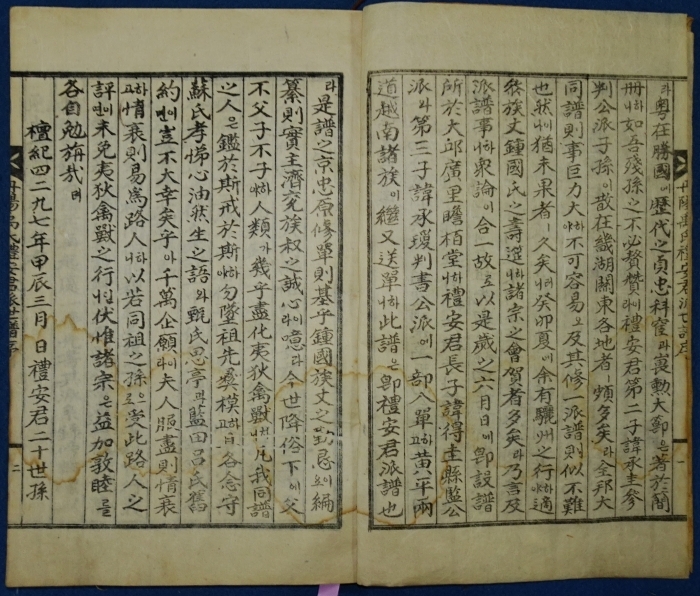 라粤在勝國에歷代之貞忠科宦과裏勳大鄭은著於簡
冊하니如吾殘孫之不必贅贊이라禮安君第二子諱承圭參
判公派子孫이散在畿湖關東各地者頗多矣라全邦大
同譜則事巨力大하야不可容易오及其修一派譜則似不難
也然이나猶未果者久矣러니癸卯夏에余有驪州之行하야適
族丈鍾國氏之壽筵하니諸宗之會賀者多矣라乃言及
派譜事하니衆論이合一故로以是歲之六月日에卽設譜
所於大邱廣里瞻栢堂하니禮安君長子諱得圭縣監公
派와第三子諱承瑗判書公派에一部入單하고黃平兩
道越南諸族이繼又送單하니此譜는卽禮安君派譜也
라是譜之京忠原修單則基乎鍾國族丈之勤忌이오編
纂則實主濟兗族叔之誠心이라噫라今世降俗下에父
不父子不子하야人類가幾乎盡化夷狄禽獸하니凡我同譜
之人은鑑於斯戒於斯하야勿墜祖先奬模하고各念守
蘇氏孝悌心油然生之語와甄氏思亭과藍田呂氏舊
約이면豈不大幸矣乎아千萬企願이라夫人服盡則情衰
하고情衰則易爲路人하니以若同祖之孫으로受此路人之
評이면未免夷狄禽獸之行이니伏惟諸宗은益加敦睦을
各自勉旃哉며
檀紀四二九七年甲辰三月 日禮安君二十世孫
丹陽禹氏禮安君派世譜序
一
丹陽禹氏禮安君派世譜序
二